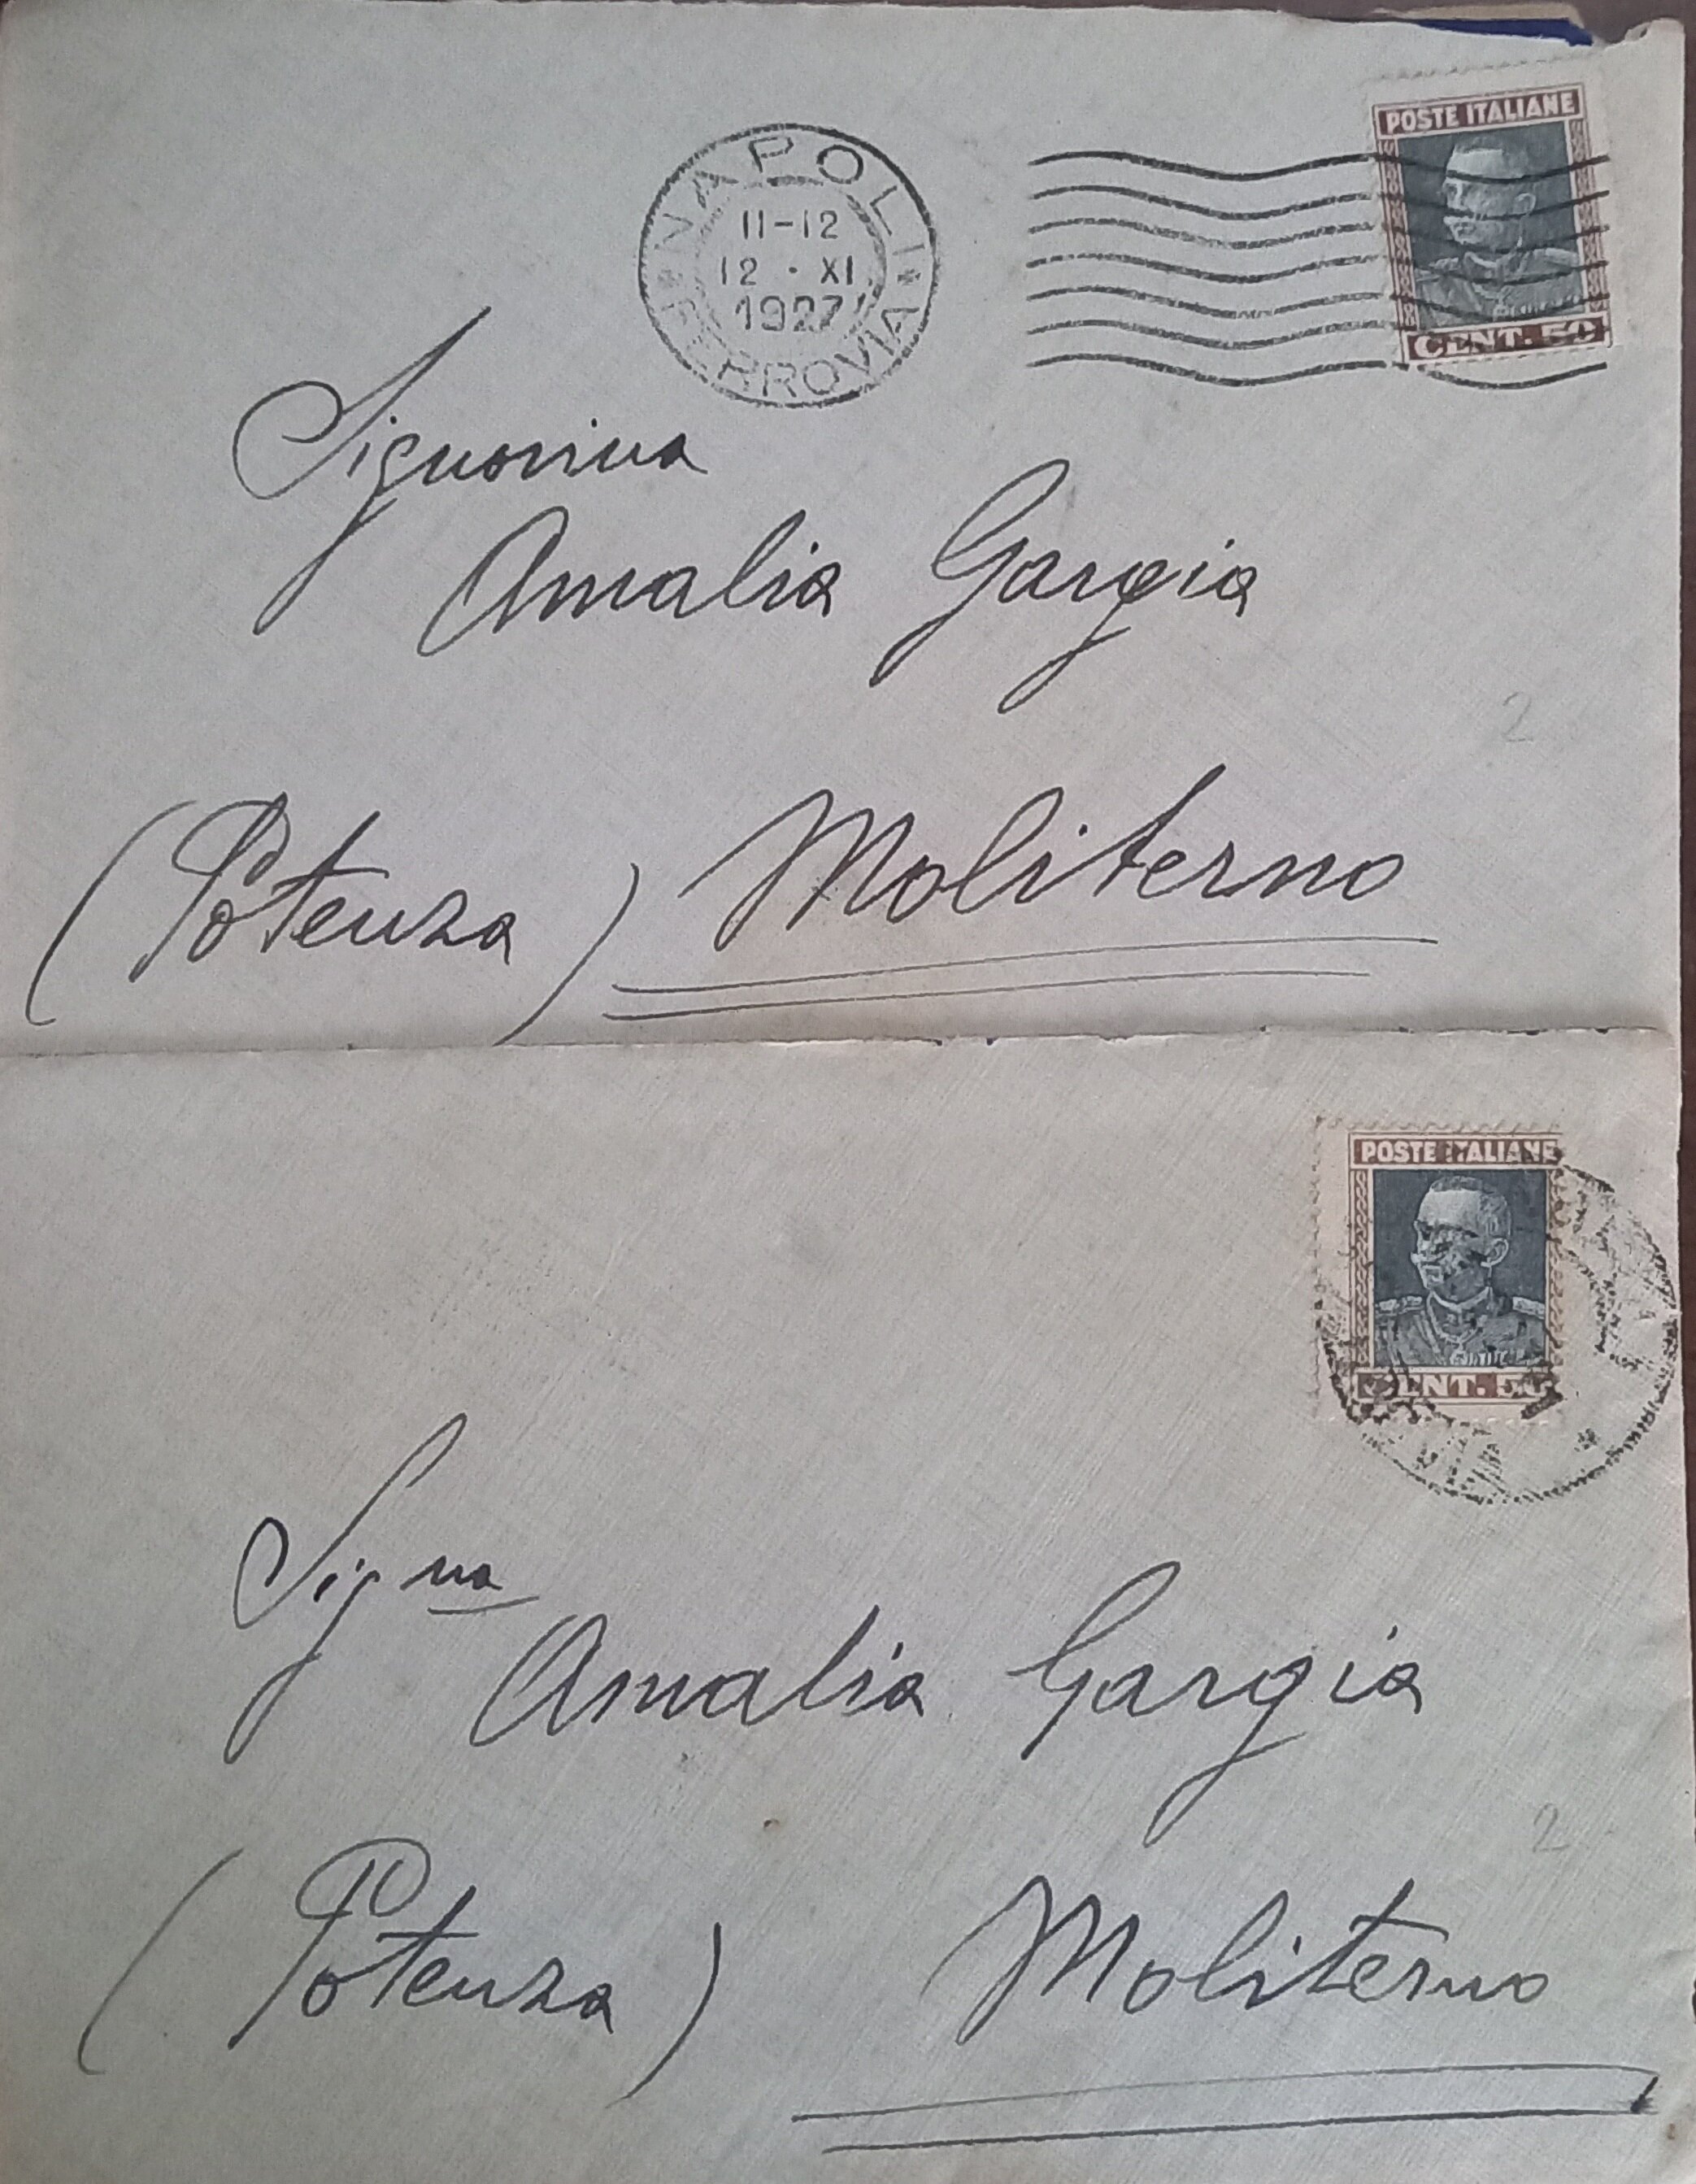 POSTE ITALIANE
NAPOLI
11-12
12 · XI
1927
FERROVIA
CENT. 50
Signorina
Amalia Gargia
2
(Potenza) Moliterno
POSTE ITALIANE
CENT. 50
Signa
Amalia Gargia
2
(Potenza) Moliterno